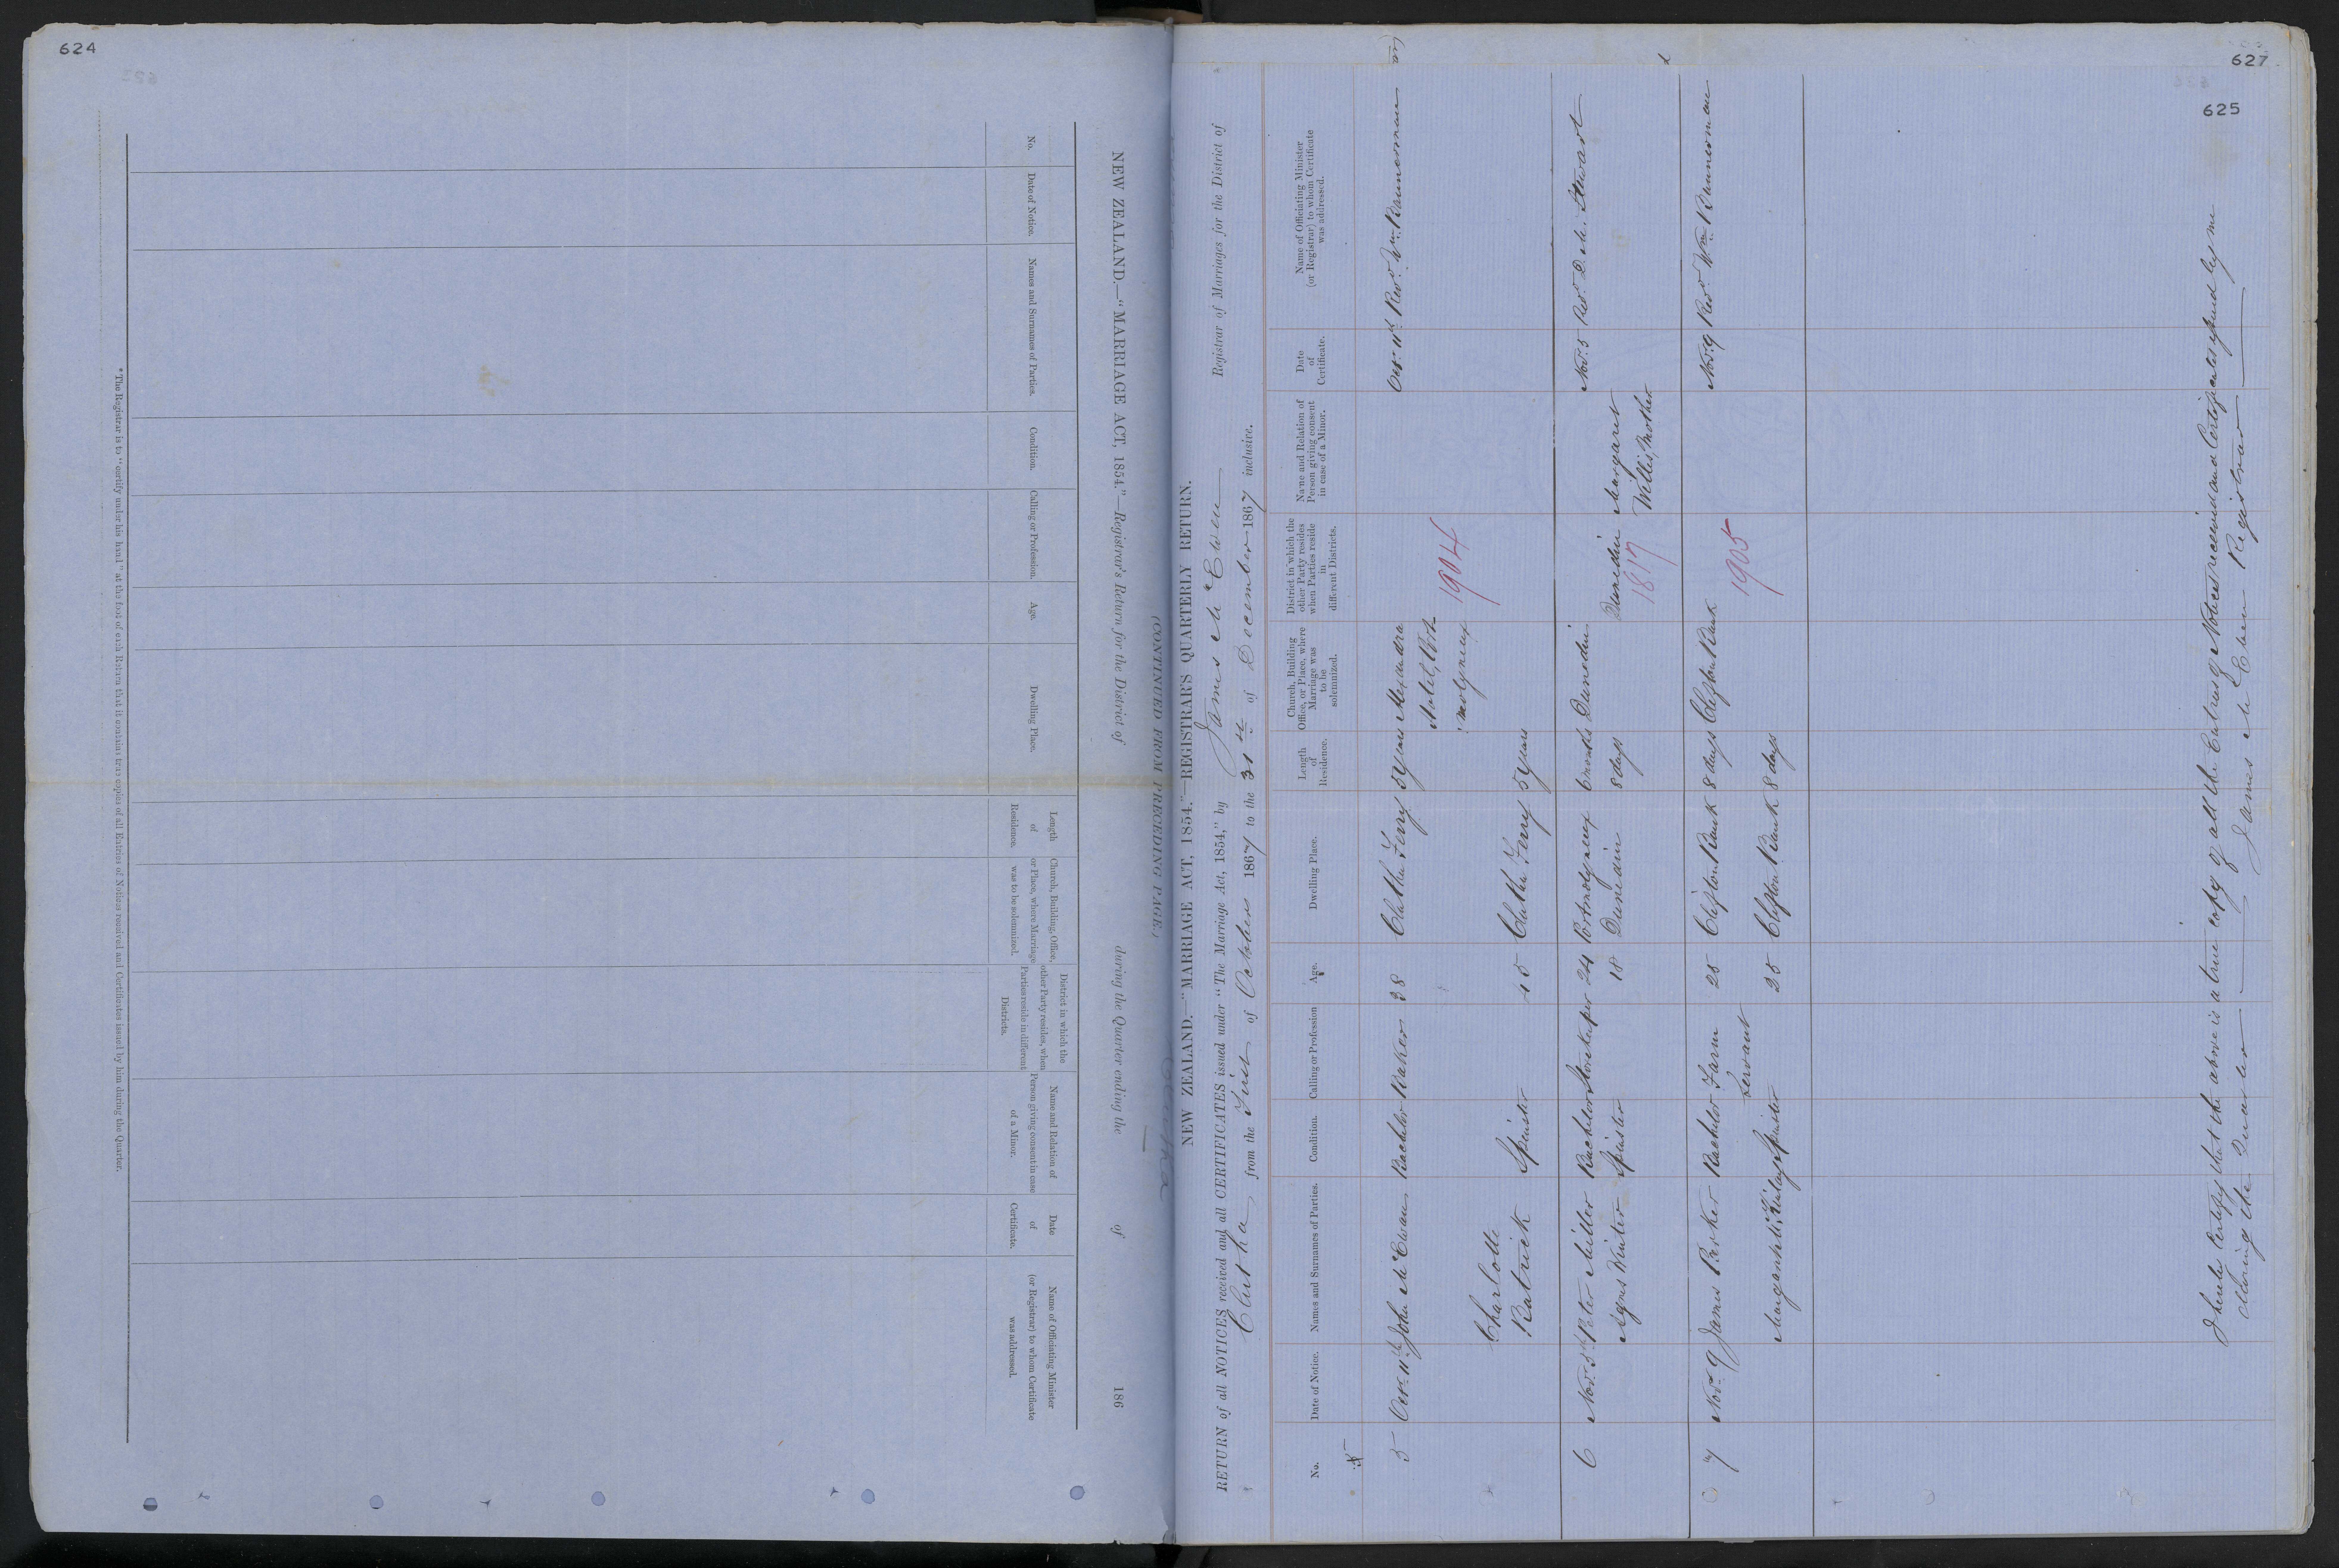 624
NEW ZEALAND.—"MARRIAGE ACT, 1854."—Registrar's Return for the District of during the Quarter ending the of 186
No.
Date of Notice.
Names and Surnames of Parties.
Condition.
Calling or Profession.
Age.
Dwelling Place.
Length
of
Residence.
Church, Building, Office,
or Place, where Marriage
was to be solemnized.
District in which the
other Party resides, when
Parties reside in different
Districts.
Name and Relation of
Person giving consent in case
of a Minor.
Date
of
Certificate.
Name of Officiating Minister
(or Registrar) to whom Certificate
was addressed.
*The Registrar is to "certify under his hand" at the foot of each Return that it contains true copies of all Entries of Notices received and Certificates issued by him during the Quarter.
(CONTINUED FROM PRECEDING PAGE.)
627
625
NEW ZEALAND.—"MARRIAGE ACT, 1854."—REGISTRAR'S QUARTERLY RETURN.
RETURN of all NOTICES received and all CERTIFICATES issued under "The Marriage Act, 1854," by James McEwen Registrar of Marriages for the District of
Clutha from the First of October 1867 to the 31st of December 1867 inclusive.
No.
Date of Notice.
Names and Surnames of Parties.
Condition.
Calling or Profession
Age.
Dwelling Place.
Length
of
Residence.
Church, Building
Office, or Place, where
Marriage was
to be
solemnized.
District in which the
other Party resides
when Parties reside
in
different Districts.
Name and Relation of
Person giving consent
in case of a Minor.
Date
of
Certificate.
Name of Officiating Minister
(or Registrar) to whom Certificate
was addressed.
5 Octr. 11th John McEwan Bachelor Baker 38 Clutha Ferry 5 years Alexandra Octr. 11th Revd. Wm. Bannerman
Hotel, Port
Molyneux
1904
Charlotte
Patrick Spinster 15 Clutha Ferry 5 years
6 Novr. 5th Peter Miller Bachelor Storekeeper 24 Portmolyneux 6 months Dunedin Novr. 5 Revd. D. M. Stuart
Agnes Winter Spinster 18 Dunedin 8 days Dunedin Margaret
1817 Willis, Mother
7 Novr. 9 James Parker Bachelor Farm 25 Clifton Bank 8 days Clifton Bank Novr. 9 Revd. Wm. Bannerman
Servant
1905
Margaret Spinster 25 Clifton Bank 8 days
I hereby Certify that the above is a true copy of all the Entries of Notices received and Certificates issued by me
during the Quarter
James McEwen Registrar